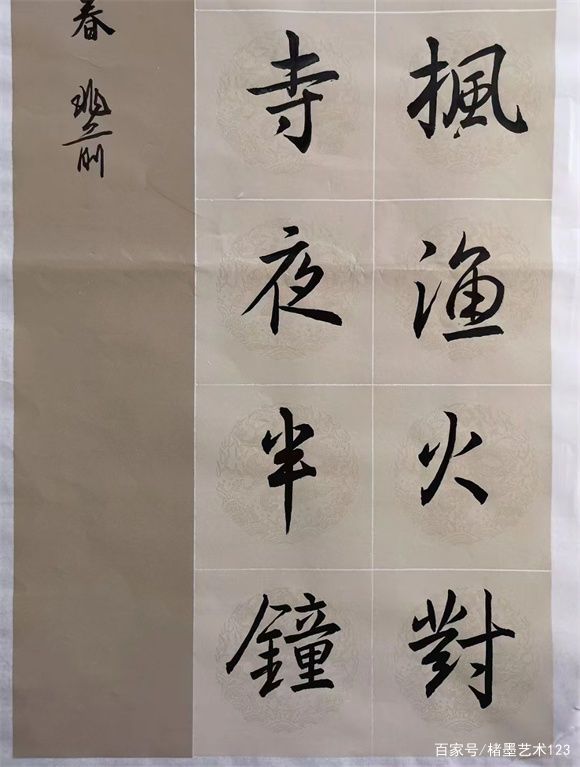 楓渔火對
寺夜半鐘
春
百家号/楮墨艺术123